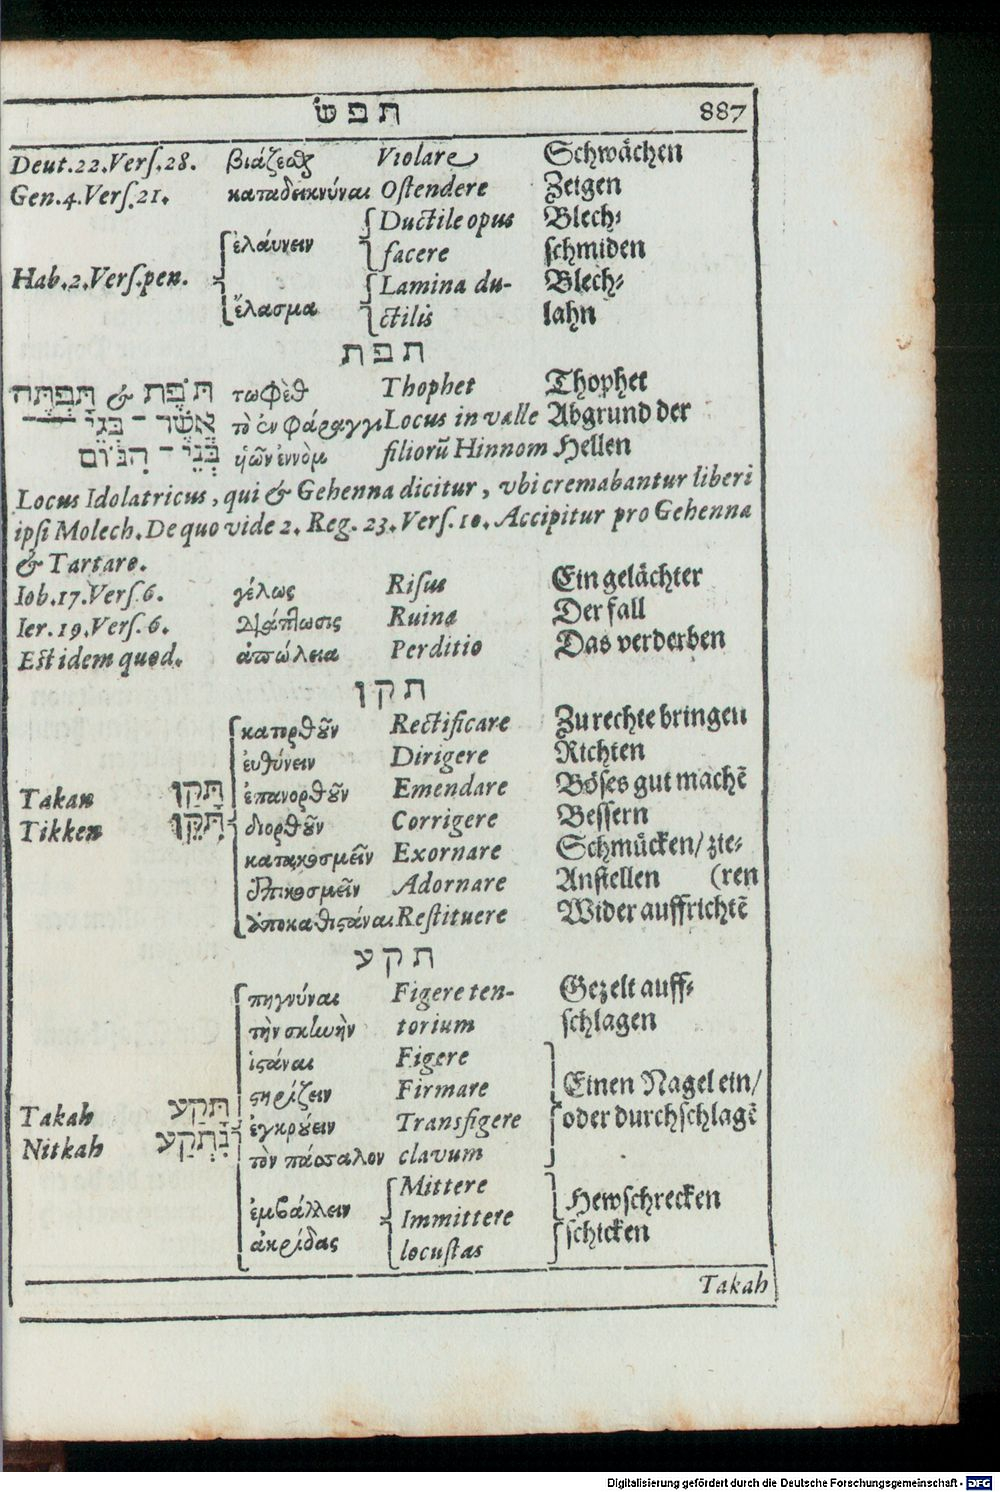 תפש 887
Deut.22.Verſ.28. βιάζεσθαι Violare Schwächen
Gen.4.Verſ.21. καταδεικνύναι Oſtendere Zeigen
Ductile opus Blech⸗
ἐλάυνειν facere ſchmiden
Hab.2.Verſ.pen. Lamina du- Blech⸗
ἔλασμα ctilis lahn
תפת
תֹּפֶת & תָּפְתֶּה τωφὲθ Thophet Thophet
אֲשֶׁר־בְּגֵי τὸ ἐν φάραγγι Locus in valle Abgrund der
בְּנֵי־הִנּוֹם ἡῶν ἐννὸμ filiorũ Hinnom Hellen
Locus Idolatricus, qui & Gehenna dicitur, vbi cremabantur liberi
ipſi Molech. De quo vide 2. Reg. 23. Verſ. 10. Accipitur pro Gehenna
& Tartaro.
Iob.17.Verſ.6. γέλως Riſus Ein gelächter
Ier.19.Verſ.6. διάπτωσις Ruina Der fall
Eſt idem quod. ἀπώλεια Perditio Das verderben
תקן
κατορθοῦν Rectificare Zu rechte bringen
ἐυθύνειν Dirigere Richten
Takan תָּקַן ἐπανορθοῦν Emendare Böſes gut machẽ
Tikken תִּקֵּן διορθοῦν Corrigere Beſſern
κατακοσμεῖν Exornare Schmücken/ zie⸗
ἐπικοσμεῖν Adornare Anſtellen (ren
ἀποκαθιστάναι Reſtituere Wider auffrichtẽ
תקע
πηγνύναι Figere ten- Gezelt auff⸗
τὴν σκηνὴν torium ſchlagen
ἱστάναι Figere
στηρίζειν Firmare Einen Nagel ein/
Takah תָּקַע ἐγκρούειν Transfigere oder durchſchlagẽ
Nitkah נִתְקַע τὸν πάσσαλον clavum
ἐμβάλλειν Mittere Hewſchrecken
Immittere ſchicken
ἀκρίδας locuſtas
Takah
Digitalisierung gefördert durch die Deutsche Forschungsgemeinschaft - DFG